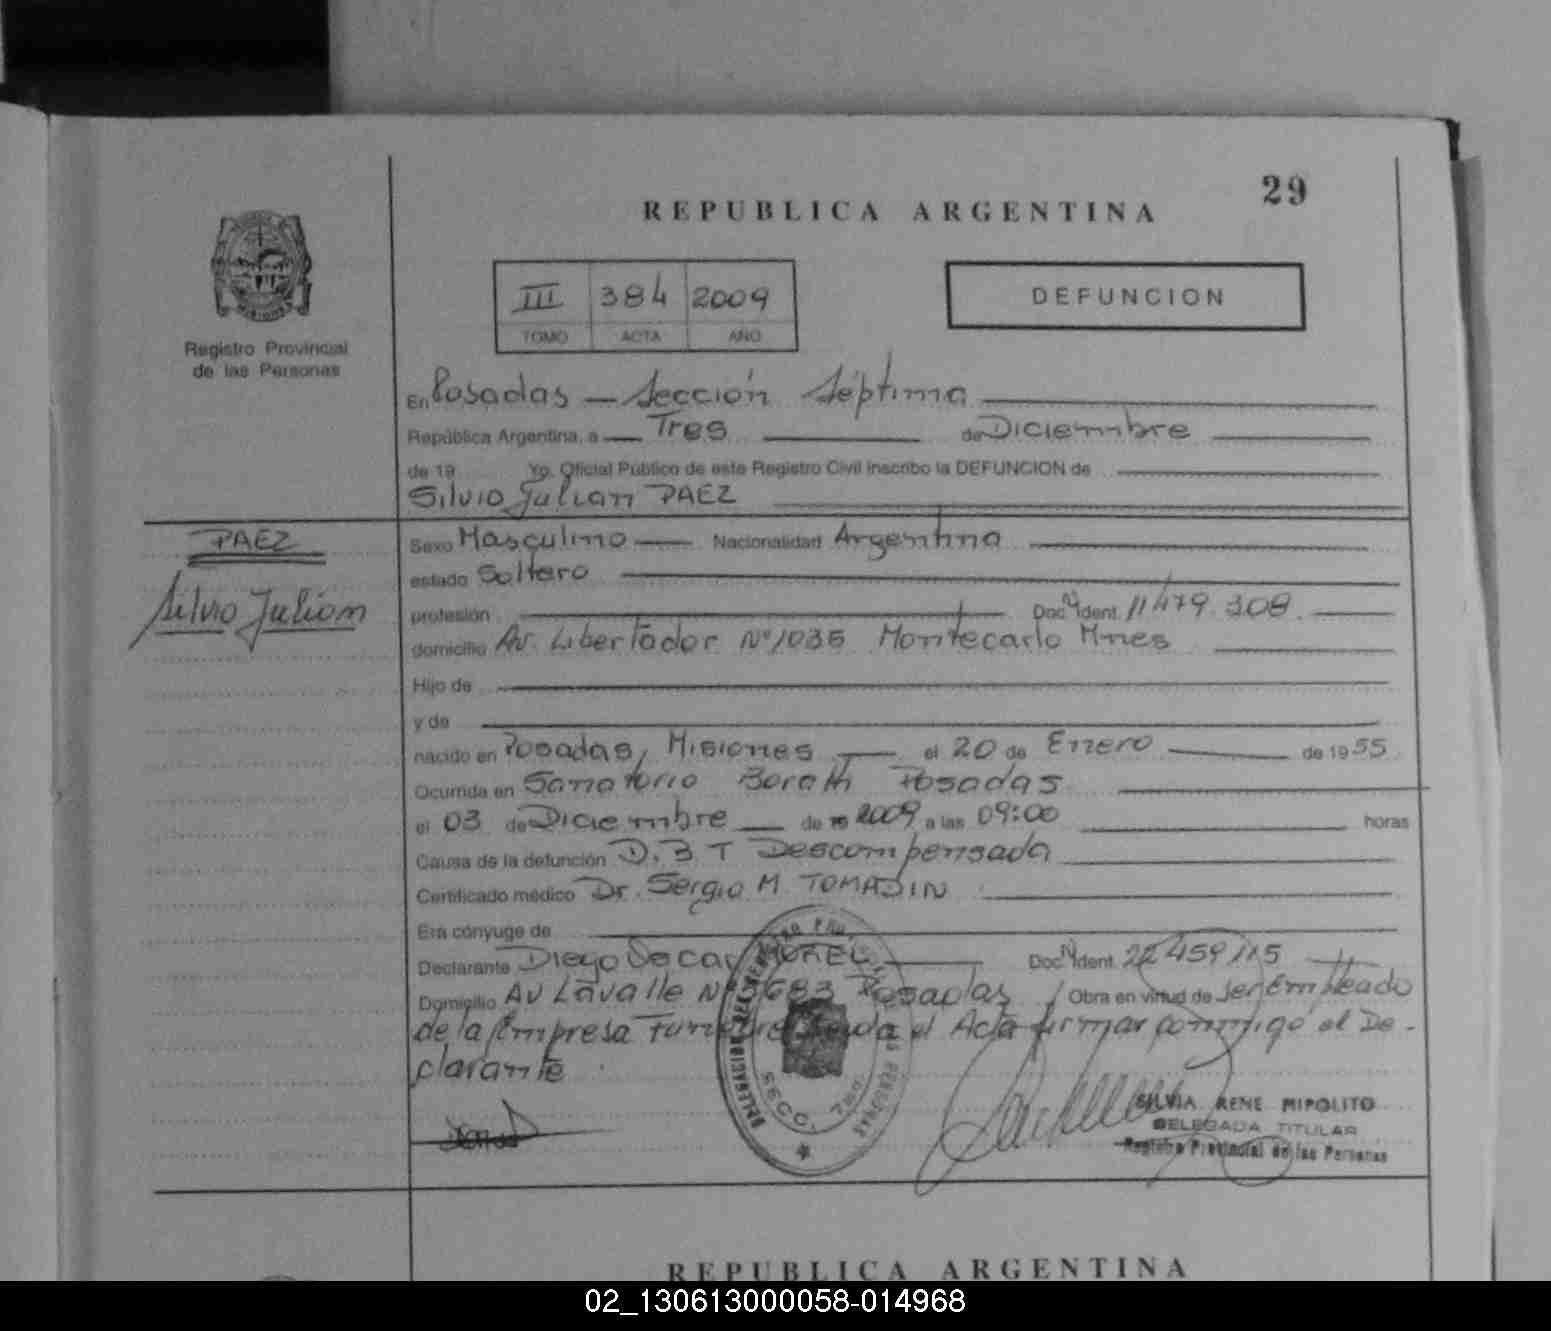 29
REPUBLICA ARGENTINA
III 384 2009
TOMO ACTA AÑO
DEFUNCION
Registro Provincial
de las Personas
En Posadas — Sección Séptima
República Argentina, a — Tres de Diciembre
de 19 Yo, Oficial Público de este Registro Civil inscribo la DEFUNCION de
Silvio Julian PAEZ
PAEZ
Silvio Julian
Sexo Masculino — Nacionalidad Argentina
estado Soltero
profesión Doc. N Ident. 11479.308
domicilio Av. Libertador Nº 1035 Montecarlo Mnes
Hijo de
y de
nacido en Posadas, Misiones — el 20 de Enero de 1955
Ocurrida en Sanatorio Boratti Posadas
el 03 de Diciembre — de 19 2009 a las 09:00 horas
Causa de la defunción D.B T Descompensada
Certificado médico Dr. Sergio M. TOMADIN
Era cónyuge de
Declarante Diego Oscar MOREL Doc. N Ident. 22459115
Domicilio Av Lavalle Nº 3683 Posadas Obra en virtud de ser Empleado
de la Empresa el Acta firmar conmigo el De-
clarante
SECC. 7ma.
SILVIA RENE HIPOLITO
DELEGADA TITULAR
Registro Provincial de las Personas
REPUBLICA ARGENTINA
02_130613000058-014968